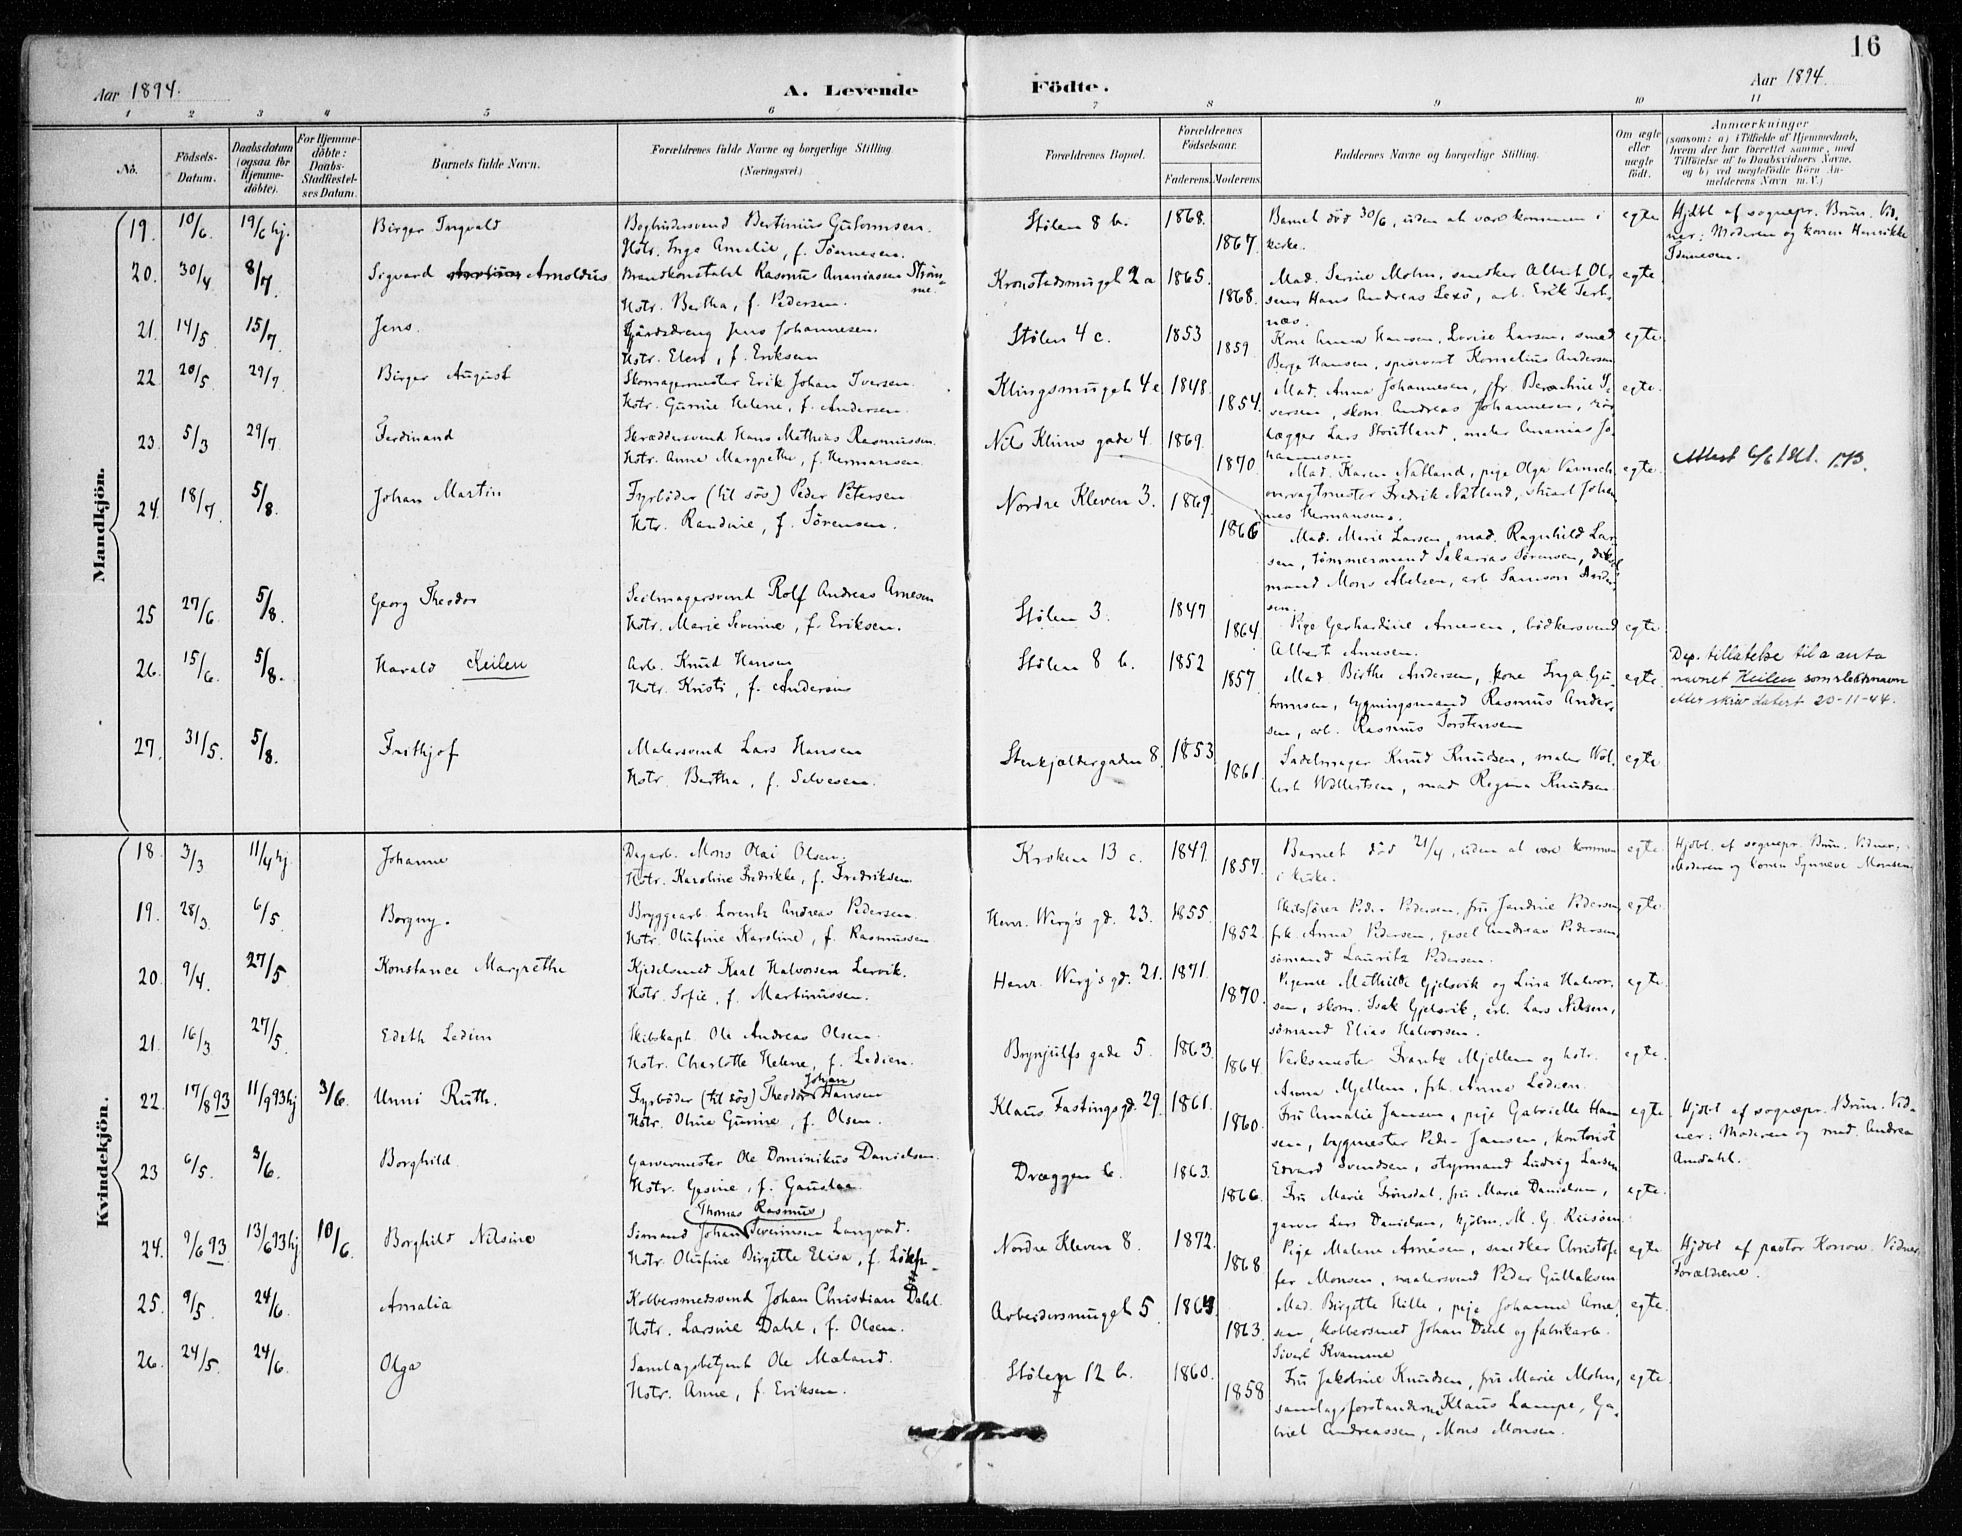 16
Aar 1894.
A. Levende Födte.
Aar 1894
1 2 3 4 5 6 7 8 9 10 11
No.
Födsels-Datum.
Daabsdatum (ogsaa for Hjemme-döbte).
For Hjemme-döbte: Daabs-Stadfæstelses Datum.
Barnets fulde Navn.
Forældrenes fulde Navne og borgerlige Stilling. (Næringsvei.)
Forældrenes Bopæl.
Forældrenes Födselsaar.
Faderens. Moderens.
Faddernes Navne og borgerlige Stilling.
Om ægte eller uægte födt.
Anmærkninger
(saasom: a) i Tilfælde af Hjemmedaab, hvem der har forrettet samme, med Tilföielse af to Daabsvidners Navne, og b) ved uægtefödte Börn Anmelderens Navn m. V.)
Mandkjön.
19. 10/6. 19/6 hj. Birger Ingvald Bertinius Gutormsen. Stølen 8 b. 1868. Barnet død 30/6, uden at være kommen i egte Hjdbt af sognepr. Brun. Vid-
Hstr. Inga Amalie, f. Tönnesen. 1867. kirke. ner: Moderen og konen Henrikke
Tönnesen.
20. 30/4 8/7. Sigvard Arnoldus Brandkonstabel Rasmus Ananiassen Strøm- Kronstadsmuget 2 a 1865. Mad. Serine Mohn, snedker Albert Ol- egte.
me. Hstr. Bertha, f. Pedersen. 1868. sen, Hans Andreas Lexö, arb. Erik Terb-
næs.
21. 14/5 15/7. Jens. Jens Johannesen. Stølen 4 c. 1853 Kone Anna Hansen, Lovise Larsen, smed egte.
Hstr. Elen, f. Eriksen 1859. Berge Hansen, Kornelius Andersen
22 20/5. 29/7 Birger August Skomagermester Erik Johan Iversen. Klingsmuget 4 e 1848. Mad. Anna Johannesen, fr. I- egte.
Hstr. Gurine Helene, f. Andersen. 1854. versen, skom. Andreas Johannesen, rör-
23. 5/3 29/7. Ferdinand Skræddersvend Hans Mathias Rasmussen. Nils Klims gade 4. 1869. lægger Lars Stoutland, maler Ananias Jo-
hannessen
Hstr. Anne Margrethe, f. Hermansen. 1870. Mad. Karen Natland, pige Olga egte.
24. 18/7. 5/8. Johan Martin Fyrböder (til sös) Peder Petersen Nordre Kleven 3. 1869. Fredrik Natland, Johan-
nes Hermansen.
Hstr. Randine, f. Sörensen. 1866 Mad. Marie Larsen, mad. Ragnhild Lar-
sen, tömmermand Sakarias Sörensen,
mand Mons Abelsen, arb Samson Ander-
sen.
25 27/6 5/8. Georg Theodor Seilmagersvend Rolf Andreas Arnesen Stølen 3. 1847
Hstr. Marie Severine, f. Eriksen. 1864. Pige Gerhardine Arnesen, bödkersvend egte
Albert Arnesen.
26. 15/6. 5/8. Harald Keilen Arb. Knud Hansen Stølen 8 b. 1852 Dep. tillatelse til å anta
Hstr. Kristi, f. Andersen 1857. Mad. Birthe Andersen, kone Inga Gu- egte. navnet Keilen som slektsnavn
tormsen, bygningsmand Rasmus Ander- etter skriv datert 20-11-44.
sen, arb. Rasmus Torstensen
27. 31/5. 5/8. Frithjof Malersvend Lars Hansen Sterkjeldergaden 8. 1853. Sadelmager Knud Knudsen, maler Wol- egte
Hstr. Bertha, f. Selvesen. 1861. lert Wollertsen, mad Regina Knudsen.
Kvindekjön.
18. 3/3 11/4 hj. Johanne Dagarb. Mons Olai Olsen. Kroken 13 c. 1849. Barnet död 21/4, uden at være kommen egte. Hjdbt. af sognepr. Brun. Vidner:
Hstr. Karoline Fredrikke, f. Fredriksen. 1857. i kirke. Moderen og konen Synneve Monsen.
19. 28/3. 6/5 Borgny. Bryggearb. Lorentz Andreas Pedersen. Henr. Wergs gd. 23. 1855. Skibsförer Peder Pedersen, fru Jendine Pedersen, egte.
Hstr. Olufine Karoline, f. Rasmussen 1852. frk. Anna Pedersen, Andreas Pedersen,
sömand Lauritz Pedersen.
20. 9/4. 27/5 Konstance Margrethe Kjedelsmed Karl Halvorsen Lervik. Henr. Wergs gd. 21. 1871. Pigerne Mathilde Gjelsvik og Lina Halvor- egte.
Hstr. Sofie, f. Martinussen. 1870. sen, skom. Isak Gjelsvik, arb. Lars Nilsen,
sömand Elias Halvorsen.
21. 16/3 27/5. Edith Ledien Skibskapt. Ole Andreas Olsen. Brynjulfs gade 5. 1863. Verksmester Frantz Mjellem og hstr. egte.
Hstr. Charlotte Helene, f. Ledien. 1864. Anna Mjellem, frk. Anna Ledien.
22. 17/8 93 11/9 93 hj 3/6. Unni Ruth. Fyrböder (til sös) Theodor Johan Hansen Klaus Fastings gd. 29. 1861. Fru Amalie Jansen, pige Gabrielle Han- egte Hjdbt af sognepr. Brun. Vid-
Hstr. Oline Gurine, f. Olsen. 1860. sen, bygmester Peder Jansen, kontorist ner: Moderen og mad. Andrea
Edvard Svendsen, styrmand Ludvig Larsen Amdahl.
23 6/5. 3/6. Borghild. Garvermester Ole Dominikus Danielsen. Dræggen 6. 1863.
Hstr. Gesine, f. Gaustaa. 1866. Fru Marie Trönsdal, fru Marie Danielsen, egte.
garver Lars Danielsen, M. G. Reisöen.
24. 9/6 93 13/6 93 hj 10/6. Borghild Nilsine Sömand Thomas Rasmus Johan Severinsen Langvad. Nordre Kleven 8. 1872. Pige Malene Arnesen, snedker Christof- egte Hjdbt af pastor Konow. Vidner:
Hstr. Olufine Birgitte Elisa, f. 1868 fer Monsen, malersvend Peder Gullaksen Forældrene.
25. 9/5 24/6. Amalia Kobbersmedsvend Johan Christian Dahl. Arbeidersmuget 5. Mad. Birgitte Hille, pige Johanne Arne- egte.
Hstr. Larsine Dahl, f. Olsen. 1863. sen, kobbersmed Johan Dahl og fabrikarb.
Sivert Kvamme
26. 24/5. 24/6. Olga Samlagsbetjent Ole Mæland. Stølen 12 b. 1860. Fru Jakobine Knudsen, fru Marie Mohn, egte.
Hstr. Anne, f. Eriksen. 1858 samlagsforstanderne Klaus Lampe, Ga-
briel Andreassen, Mons Monsen.